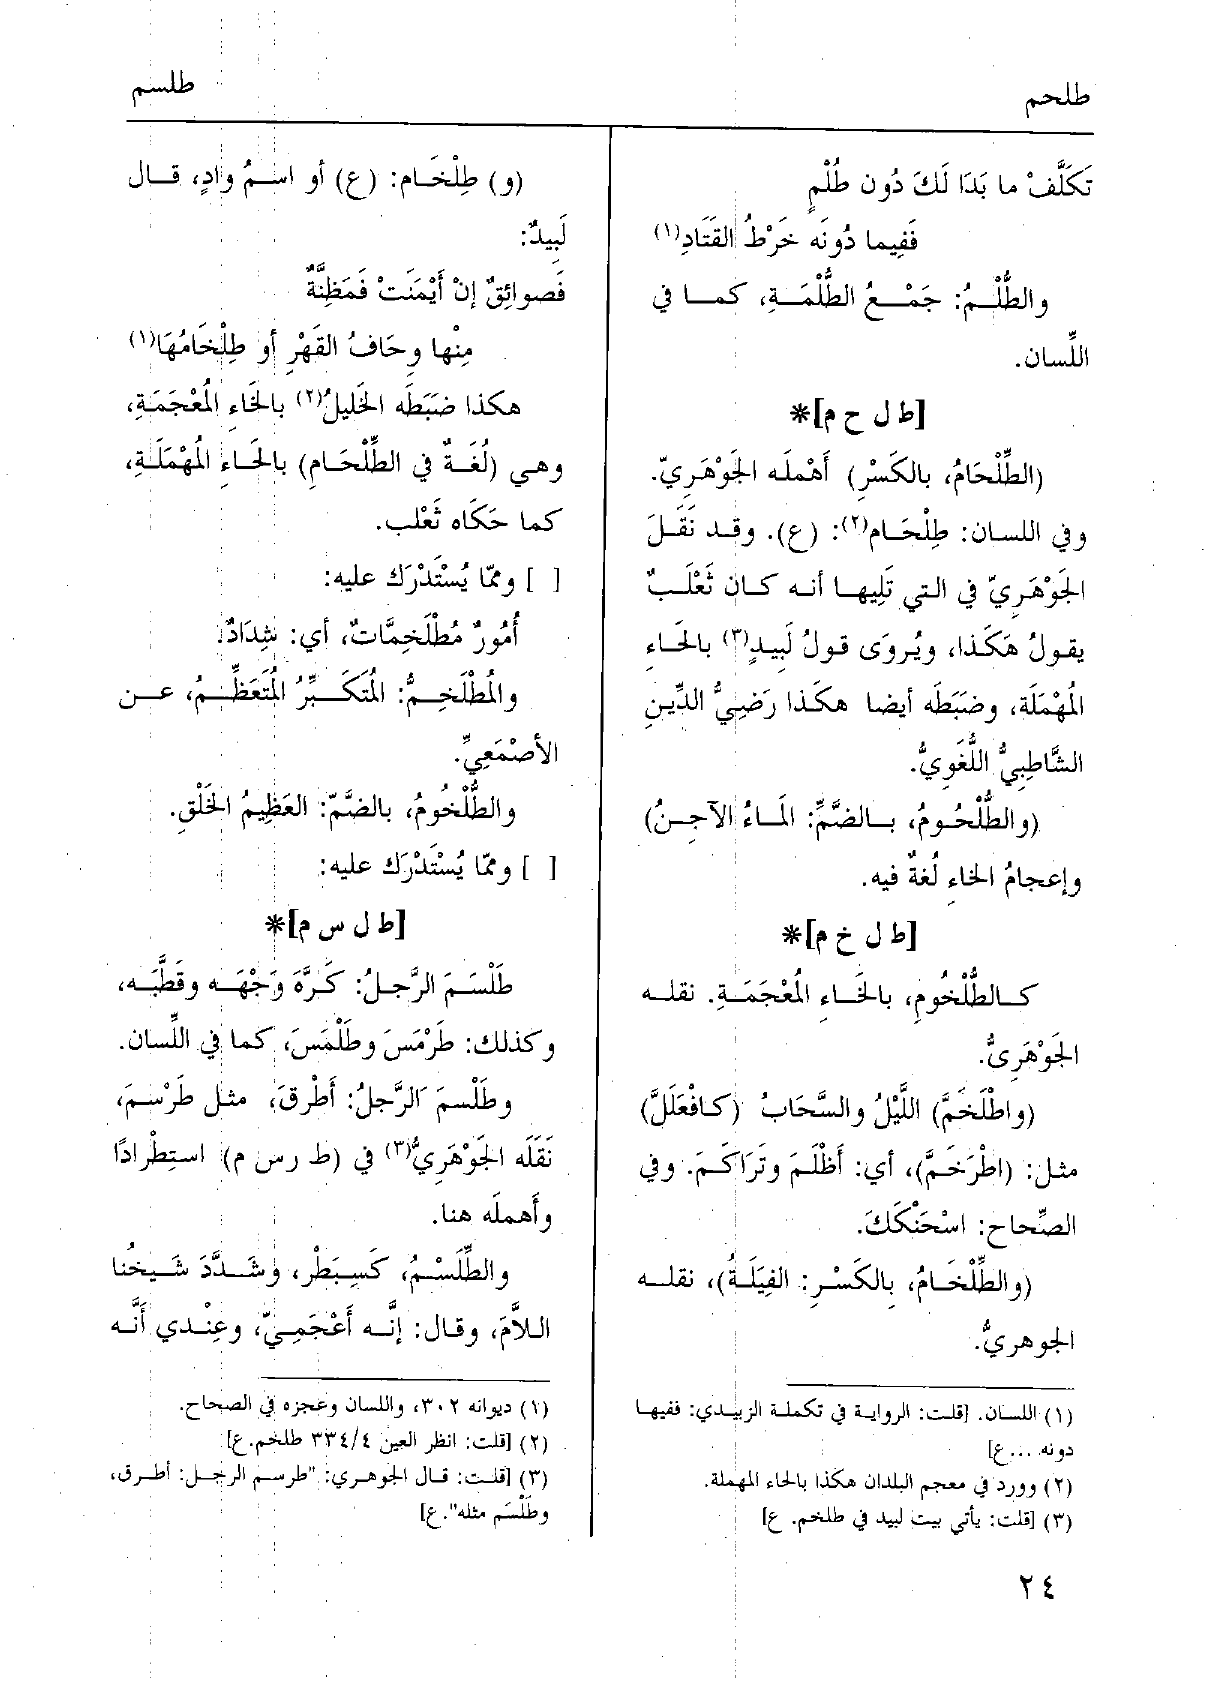 طلحم
طلسم
تَكَلَّفْ ما بَدَا لَكَ دُون طُلْمٍ
فَفِيما دُونَه خَرْطُ القَتَادِ(١)
والطُّلْمُ: جَمْعُ الطُّلْمَةِ، كما في
اللِّسان.
[ط ل ح م]*
(الطِّلْحَامُ، بالكَسْرِ) أَهْمَله الجَوْهَرِيّ.
وفي اللسان: طِلْحَام(٢): (ع). وقد نَقَلَ
الجَوْهَرِيّ في التي تَلِيها أنه كان ثَعْلَبٌ
يقولُ هَكَذا، ويُروَى قولُ لَبِيدٍ(٣) بالحَاءِ
المُهْمَلَة، وضَبَطَه أيضا هكذا رَضِيُّ الدِّينِ
الشَّاطِبِيُّ اللُّغَوِيُّ.
(والطُّلْحُومُ، بالضَّمِّ: المَاءُ الآجِنُ)
وإعجامُ الخاءِ لُغةٌ فيه.
[ط ل خ م]*
كالطُّلْخُومِ، بالخَاءِ المُعْجَمَةِ. نقله
الجَوْهَرِىُّ.
(واطْلَخَمَّ) اللَّيْلُ والسَّحَابُ (كافْعَلَلَّ)
مثل: (اطْرَخَمَّ)، أي: أَظْلَمَ وتَرَاكَمَ. وفي
الصِّحاح: اسْحَنْكَكَ.
(والطِّلْخَامُ، بالكَسْرِ: الفِيَلَةُ)، نقله
الجوهريُّ.
(١) اللسان. [قلت: الرواية في تكملة الزبيدي: ففيها
دونه ...ع]
(٢) وورد في معجم البلدان هكذا بالحاء المهملة.
(٣) [قلت: يأتي بيت لبيد في طلخم. ع]
(و) طِلْخَام: (ع) أو اسْمُ وادٍ، قال
لَبِيدٌ:
فَصوائِقٌ إنْ أَيْمَنَتْ فَمَظِنَّةٌ
مِنْها وِحَافُ القَهْرِ أو طِلْخَامُهَا(١)
هكذا ضَبَطَه الخَلِيلُ(٢) بالخَاءِ المُعْجَمَةِ،
وهي (لُغَةٌ في الطِّلْحَامِ) بالحَاءِ المُهْمَلَةِ،
كما حَكَاه ثَعْلب.
[ ] وممّا يُسْتَدْرَك عليه:
أُمُورٌ مُطْلَخِمَّاتٌ، أي: شِدَادٌ.
والمُطْلَخِمُّ: المُتَكَبِّرُ المُتَعَظِّمُ، عن
الأصْمَعِيِّ.
والطُّلْخُومُ، بالضَّمّ: العَظِيمُ الخَلْقِ.
[ ] وممّا يُسْتَدْرَك عليه:
[ط ل س م]*
طَلْسَمَ الرَّجلُ: كَرَّهَ وَجْهَه وقَطَّبَه،
وكذلك: طَرْمَسَ وطَلْمَسَ، كما في اللِّسان.
وطَلْسمَ الرَّجلُ: أَطْرقَ، مثل طَرْسمَ،
نَقَلَه الجَوْهَرِيُّ(٣) في (ط رس م) استِطْرادًا
وأَهملَه هنا.
والطِّلَسْمُ، كَسِبَطْر، وشَدَّدَ شَيخُنا
اللاَّمَ، وقال: إنَّه أَعْجَمِيّ، وعِنْدي أَنَّه
(١) ديوانه ٣٠٢، واللسان وعجزه في الصحاح.
(٢) [قلت: انظر العين ٣٣٤/٤ طلخم.ع]
(٣) [قلت: قال الجوهري: "طرسم الرجل: أطرق،
وطَلْسَم مثله".ع]
٢٤